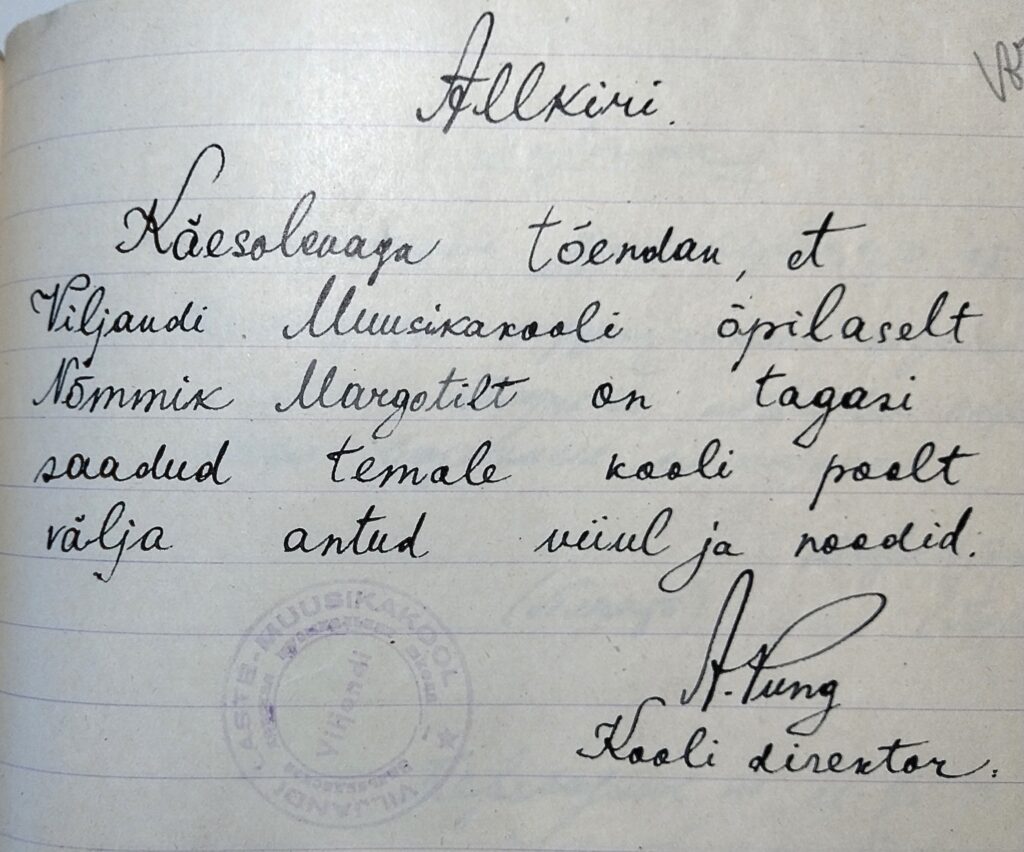 Allkiri.
Käesolevaga tõendan, et
Viljandi Muusikakooli õpilaselt
Nõmmik Margotilt on tagasi
saadud temale kooli poolt
välja antud viiul ja noodid.
A. Pung
Kooli direktor.
VILJANDI LASTE-MUUSIKAKOOL
Viljandi